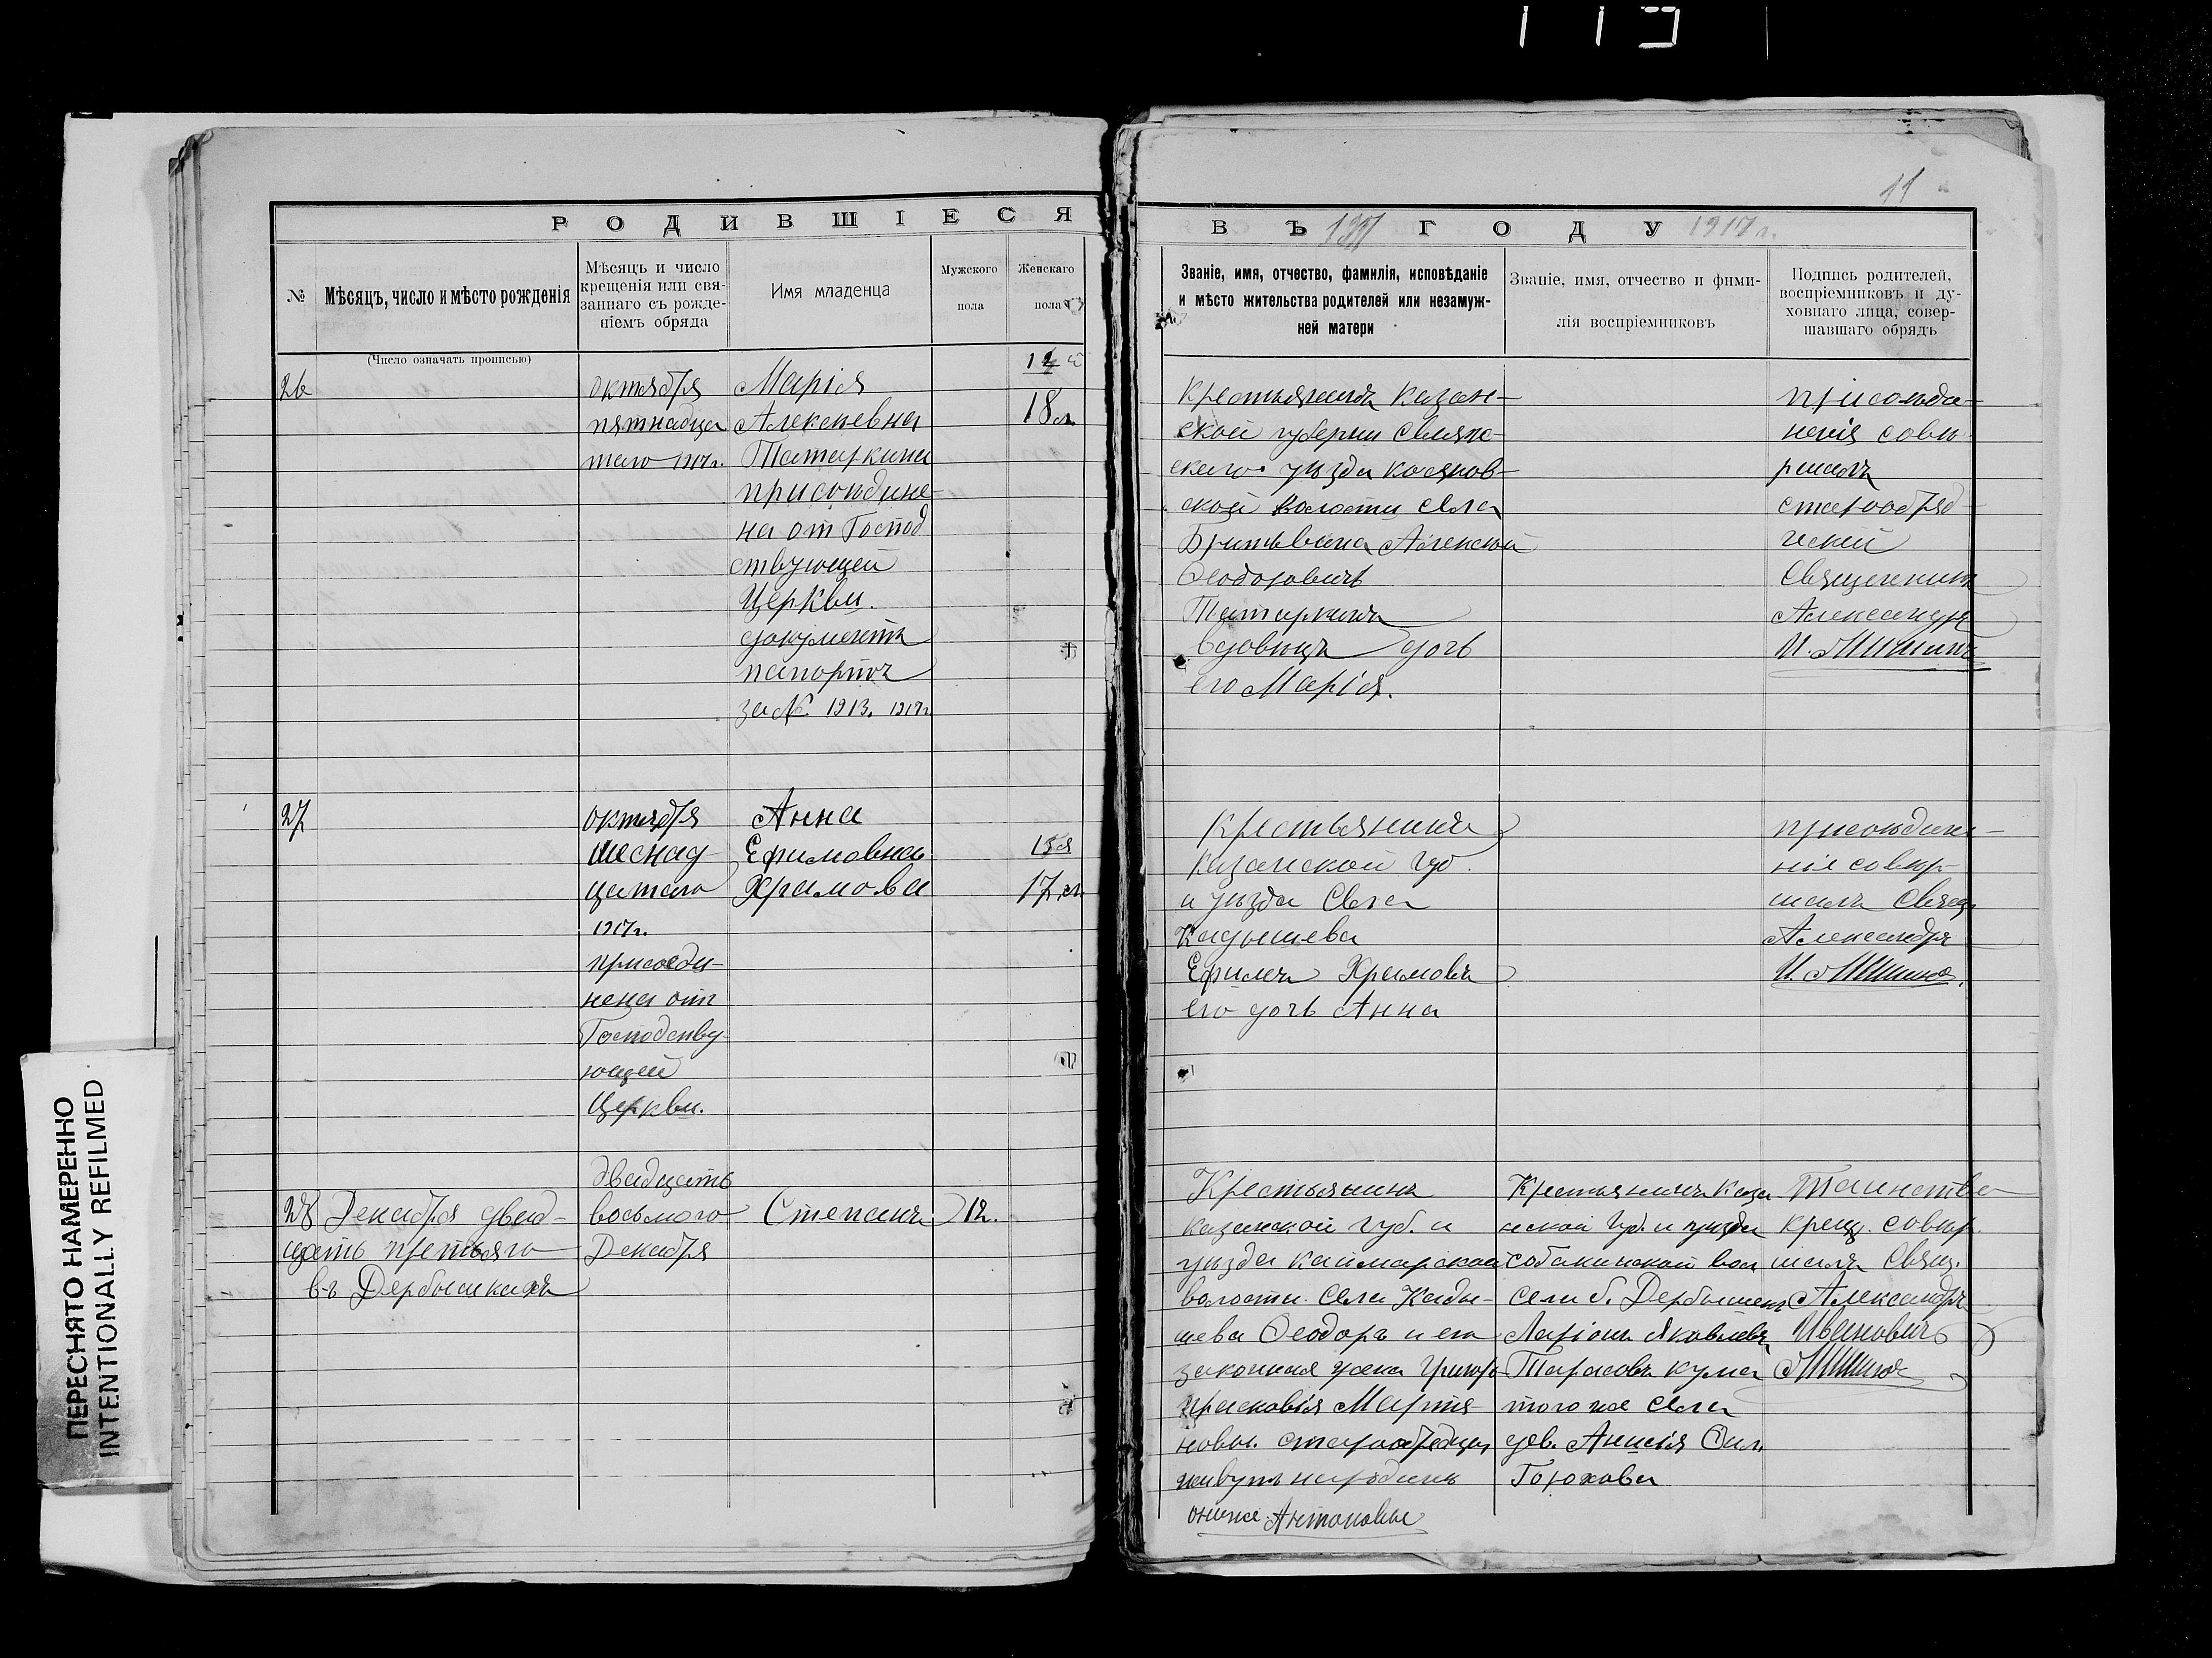 11
РОДИВШІЕСЯ
ВЪ 1917 ГОДУ 1917 г.
№
Мѣсяцъ, число и мѣсто рожденія
Мѣсяцъ и число
крещенія или свя-
заннаго съ рожде-
ніемъ обряда
Имя младенца
Мужского
пола
Женскаго
пола
Званіе, имя, отчество, фамилія, исповѣданіе
и мѣсто жительства родителей или незамуж-
ней матери
Званіе, имя, отчество и фими-
лія воспріемниковъ
Подпись родителей,
воспріемниковъ и ду-
ховнаго лица, совер-
шавшаго обрядъ
(Число означать прописью)
26
октября
пятнадца
таго 1917г.
Марія
Алексеевна
Татаркина
присоъдине-
на от Господ
ствующей
Церкви.
документъ
папортъ
за № 1913. 1917г.
14
18 л.
Крестьянинъ Казан-
ской губерни Свияж-
скаго уъзда косяков-
ской волости села
Бритвина Алексъй
Ѳеодоровичъ
Татаркинъ
вдовецъ дочь
его Марія.
присоъди-
ненія совъ-
ршалъ
старообряд-
ческий
Священникъ
Александръ
И. Мишинъ
27
октября
шеснад-
цатаго
1917г.
присоеди-
нена от
Господству-
ющей
Церкви.
Анна
Ефимовна
Храмова
15я
17 л.
Крестьянинъ
Казанской губ.
и уъзда Села
Кадышева
Ефимъ Храмовъ
его дочь Анна
присоъдине-
ніе совър-
шалъ Свящ.
Александръ
И. Мишинъ.
28
Декабря двад-
цать третьяго
въ Дербышкахъ
Двадцать
восьмого
Декабря
Степанъ
12.
Крестьянинъ
казанской губ. и
уъзда каймарской
волости. Села Кады-
шева Ѳеодоръ и его
законная жена
Прасковія Марты-
новы. старообрядцы
живутъ
ониже Антоновы
Крестьянинъ Каза
нской губ. и уъзда
собакинской вол
Села б. Дербышки
Ларіонъ Яковлевъ
Тарасовъ кума
того же Села
дев. Анисія Фил.
Горохова
Таинство
крещ. совър-
шалъ Свящ.
Александръ
Ивановичъ
Мишинъ
ПЕРЕСНЯТО НАМЕРЕННО
INTENTIONALLY REFILMED